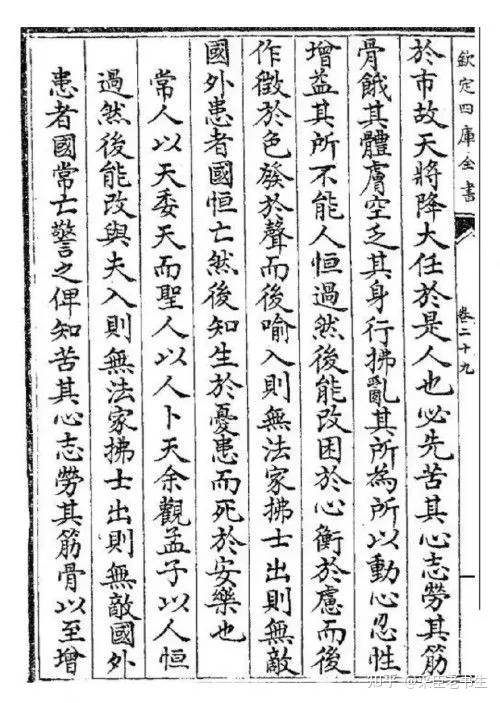 欽定四庫全書
卷二十九
於市故天將降大任於是人也必先苦其心志勞其筋
骨餓其體膚空乏其身行拂亂其所為所以動心忍性
增益其所不能人恒過然後能改困於心衡於慮而後
作徵於色發於聲而後喻入則無法家拂士出則無敵
國外患者國恒亡然後知生於憂患而死於安樂也
常人以天委天而聖人以人卜天余觀孟子以人恒
過然後能改與夫入則無法家拂士出則無敵國外
患者國常亡警之俾知苦其心志勞其筋骨以至增
知乎 @臣老书生